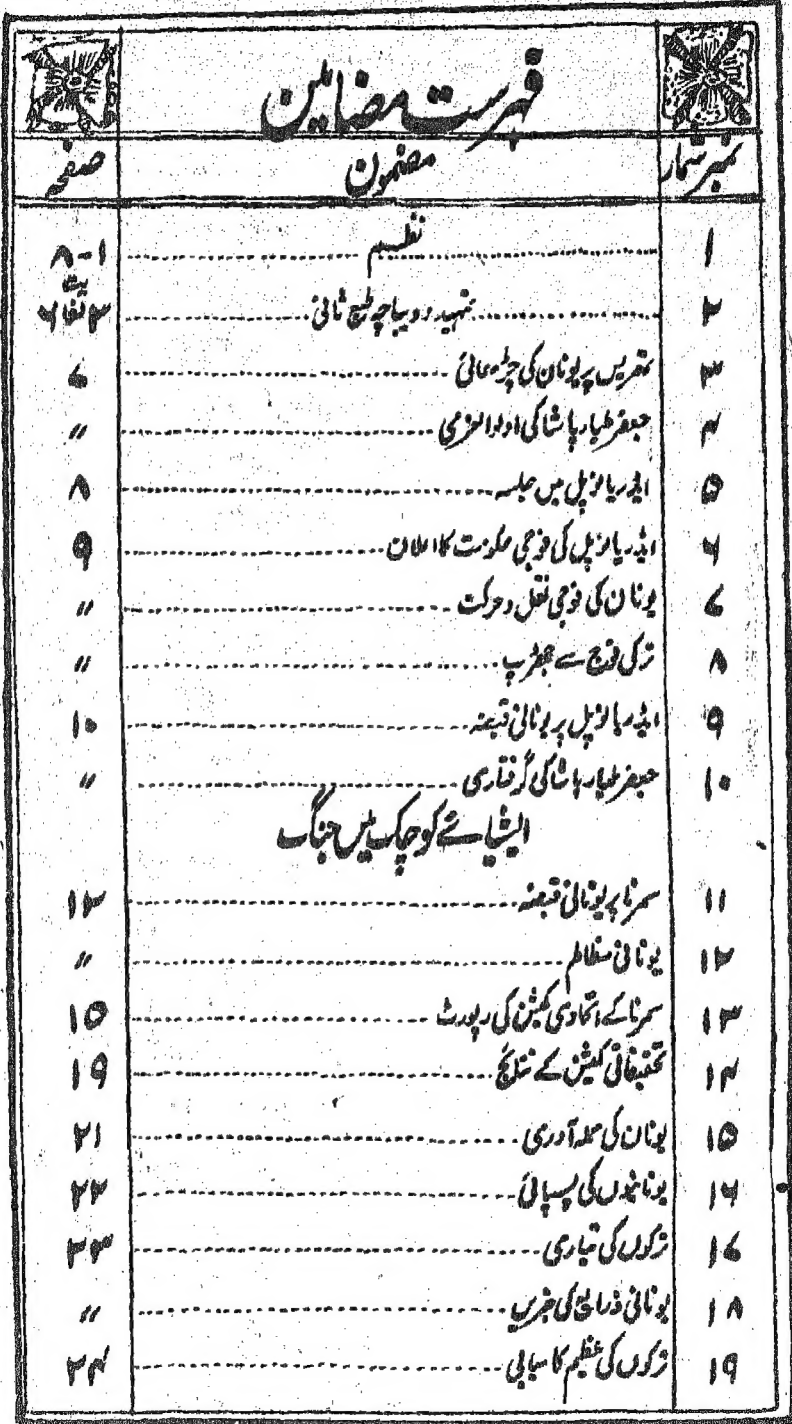 فہرست مضامین
نمبر شمار مضمون صفحہ
۱ نظم ۱-۸
۲ تمہید و دیباچہ طبع ثانی ۳ لغایت ۶
۳ تھریس پر یونان کی چڑھائی ۷
۴ جعفر طیار پاشا کی اولوالعزمی 〃
۵ ایڈریانوپل میں جلسہ ۸
۶ ایڈریانوپل کی فوجی حکومت کا اعلان ۹
۷ یونان کی فوجی نقل و حرکت 〃
۸ ترکی فوج سے جھڑپ 〃
۹ ایڈریانوپل پر یونانی قبضہ ۱۰
۱۰ جعفر طیار پاشا کی گرفتاری 〃
ایشیائے کوچک میں جنگ
۱۱ سمرنا پر یونانی قبضہ ۱۳
۱۲ یونانی مظالم 〃
۱۳ سمرنا کے اتحادی کمیشن کی رپورٹ ۱۵
۱۴ تحقیقاتی کمیشن کے نتائج ۱۹
۱۵ یونان کی حملہ آوری ۲۱
۱۶ یونانیوں کی پسپائی ۲۲
۱۷ ترکوں کی تیاری ۲۳
۱۸ یونانی ذرایع کی خبریں 〃
۱۹ ترکوں کی عظیم کامیابی ۲۴